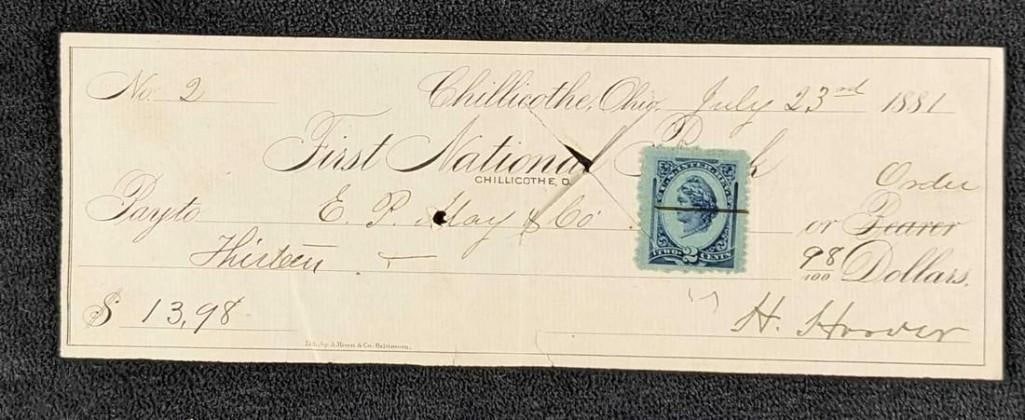 No. 2 Chillicothe, Ohio, July 23rd 1881
First National Bank
CHILLICOTHE, O.
Order
Pay to E. P. May & Co or Bearer
Thirteen 98/100 Dollars.
U.S. INTER.
TWO 2 CENTS
$ 13,98 H. Hoover
Lith. by A. Hoen & Co. Baltimore.